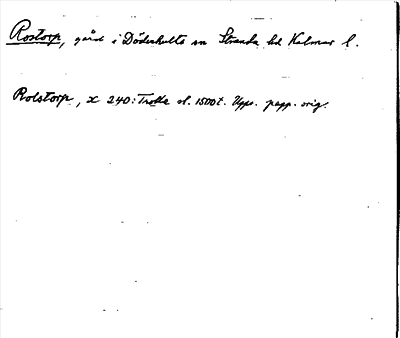 Rostorp, gård i Döderhults sn Stranda hd Kalmar l.
Rolstorp, x 240: Trolle sl. 1500 t. Upps. papp. orig.